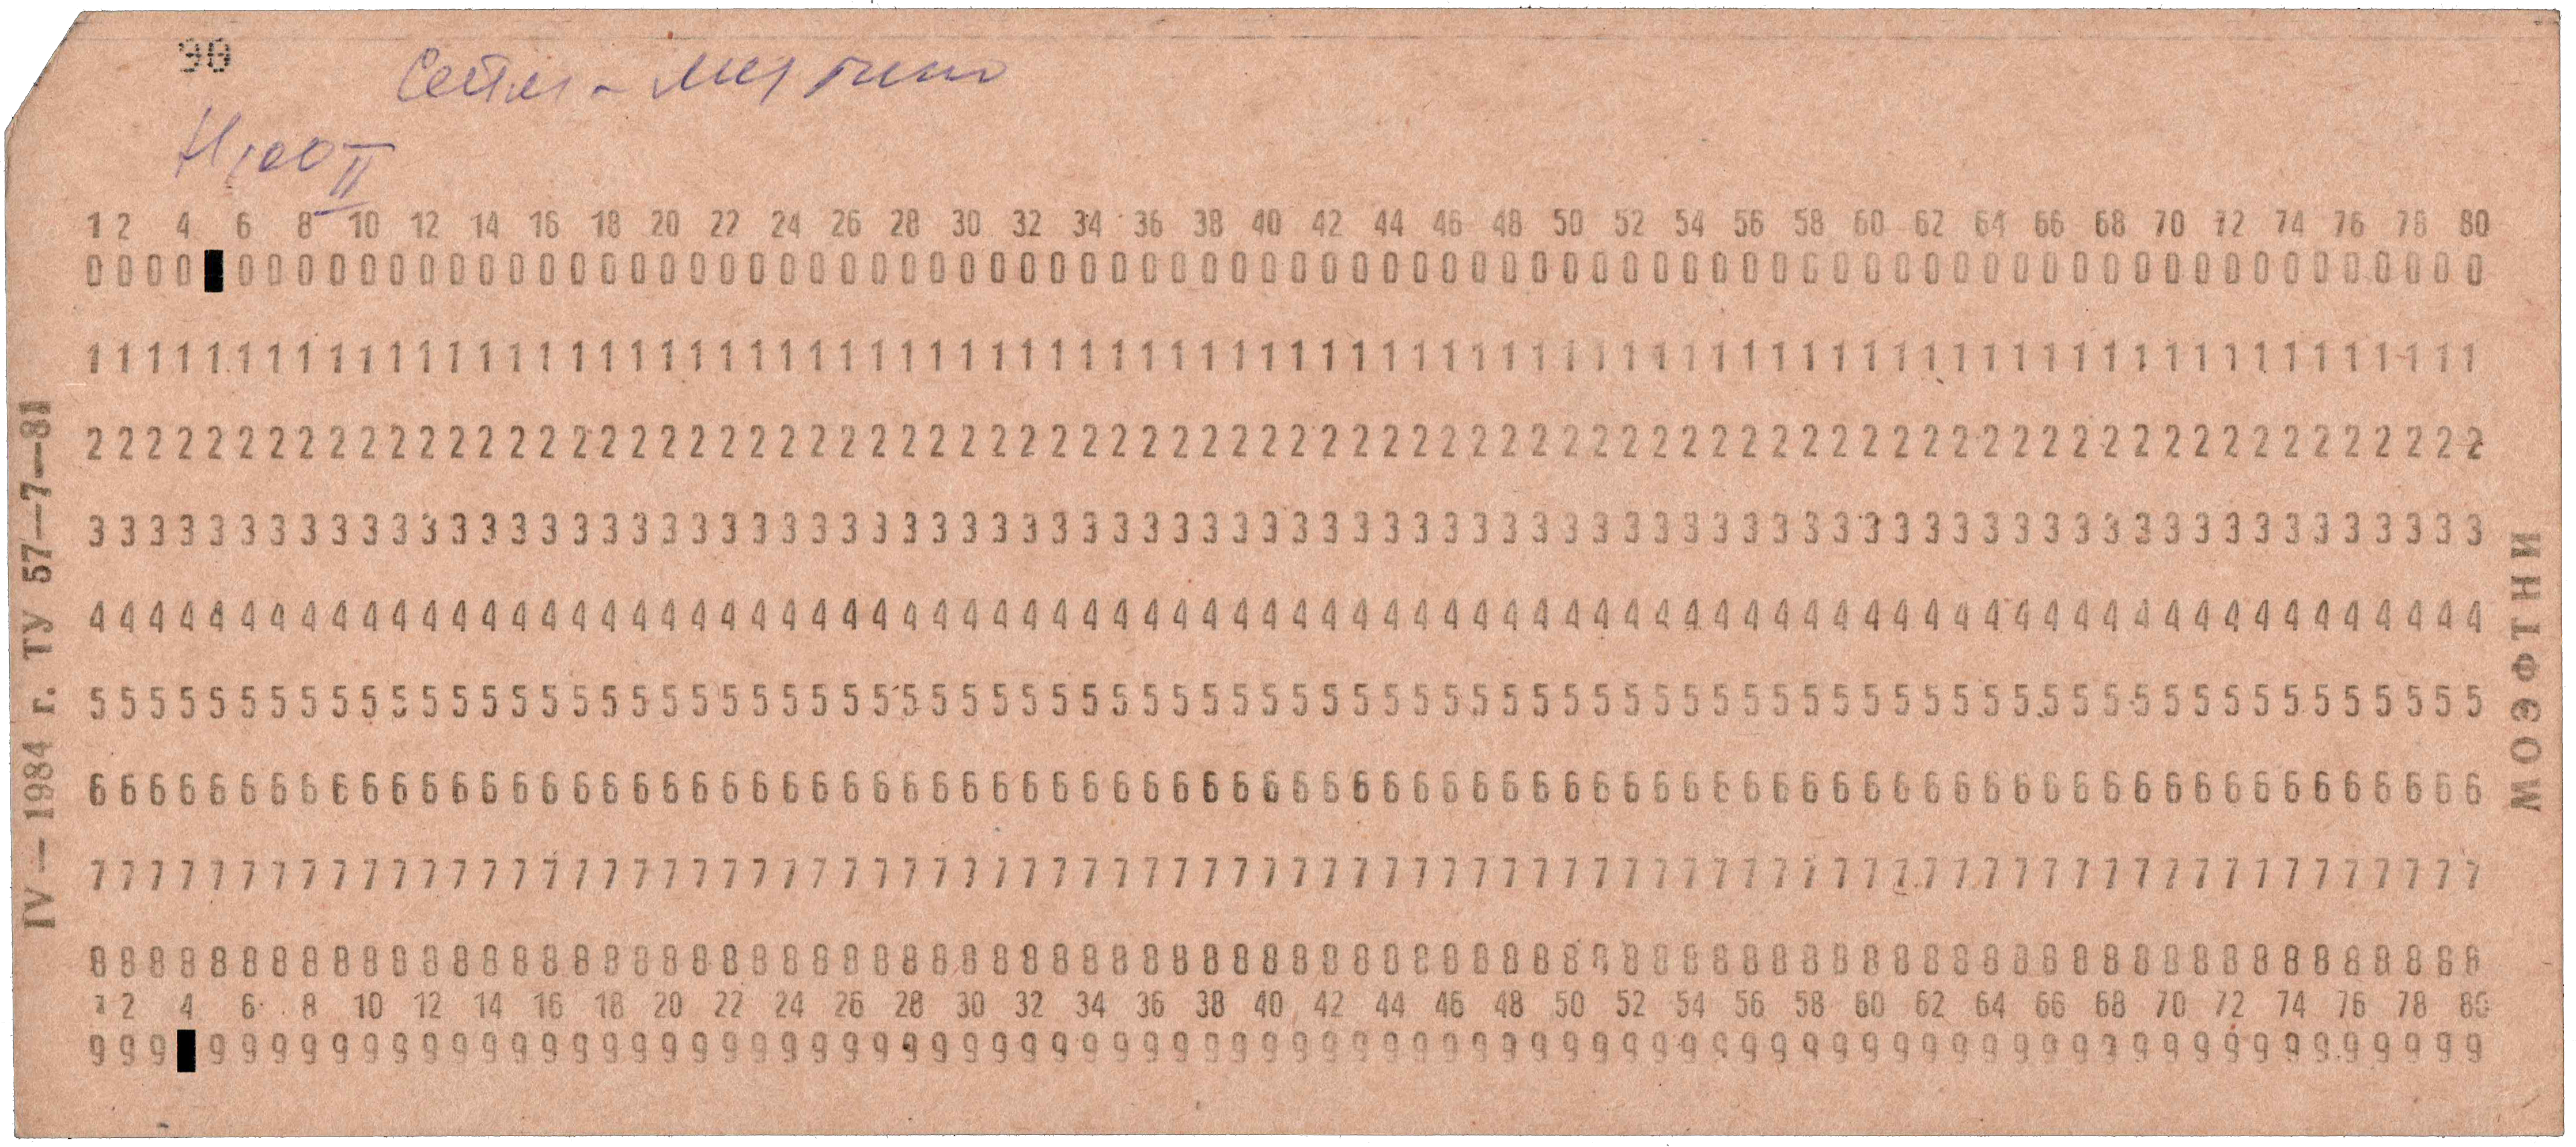 90
1 2 4 6 8 10 12 14 16 18 20 22 24 26 28 30 32 34 36 38 40 42 44 46 48 50 52 54 56 58 60 62 64 66 68 70 72 74 76 78 80
0000 000000000000000000000000000000000000000000000000000000000000000000000000000
11111111111111111111111111111111111111111111111111111111111111111111111111111111
22222222222222222222222222222222222222222222222222222222222222222222222222222222
33333333333333333333333333333333333333333333333333333333333333333333333333333333
44444444444444444444444444444444444444444444444444444444444444444444444444444444
55555555555555555555555555555555555555555555555555555555555555555555555555555555
66666666666666666666666666666666666666666666666666666666666666666666666666666666
77777777777777777777777777777777777777777777777777777777777777777777777777777777
88888888888888888888888888888888888888888888888888888888888888888888888888888888
1 2 4 6 8 10 12 14 16 18 20 22 24 26 28 30 32 34 36 38 40 42 44 46 48 50 52 54 56 58 60 62 64 66 68 70 72 74 76 78 80
999 9999999999999999999999999999999999999999999999999999999999999999999999999999
IV—1984 г. ТУ 57—7—81
МОЭФТНИ